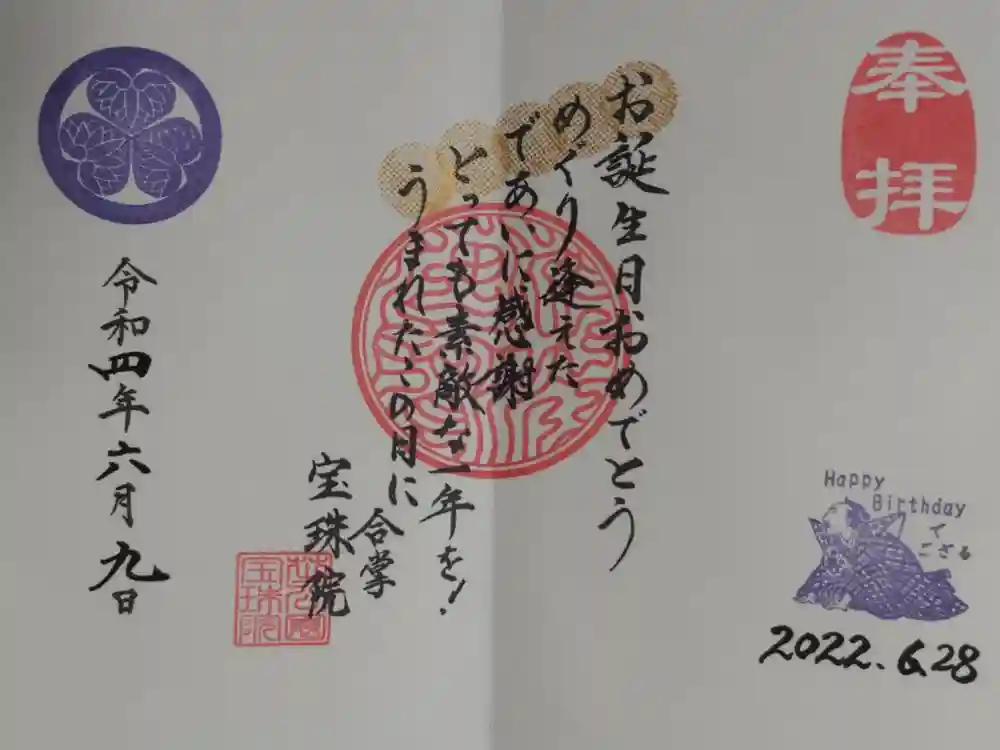 奉拝
Happy
Birthday
で
ござる
2022.6.28
お誕生日おめでとう
めぐり逢えた
であいに感謝
とっても素敵な一年を!
うまれたこの日に
合掌
宝珠院
宝珠院
令和四年六月九日